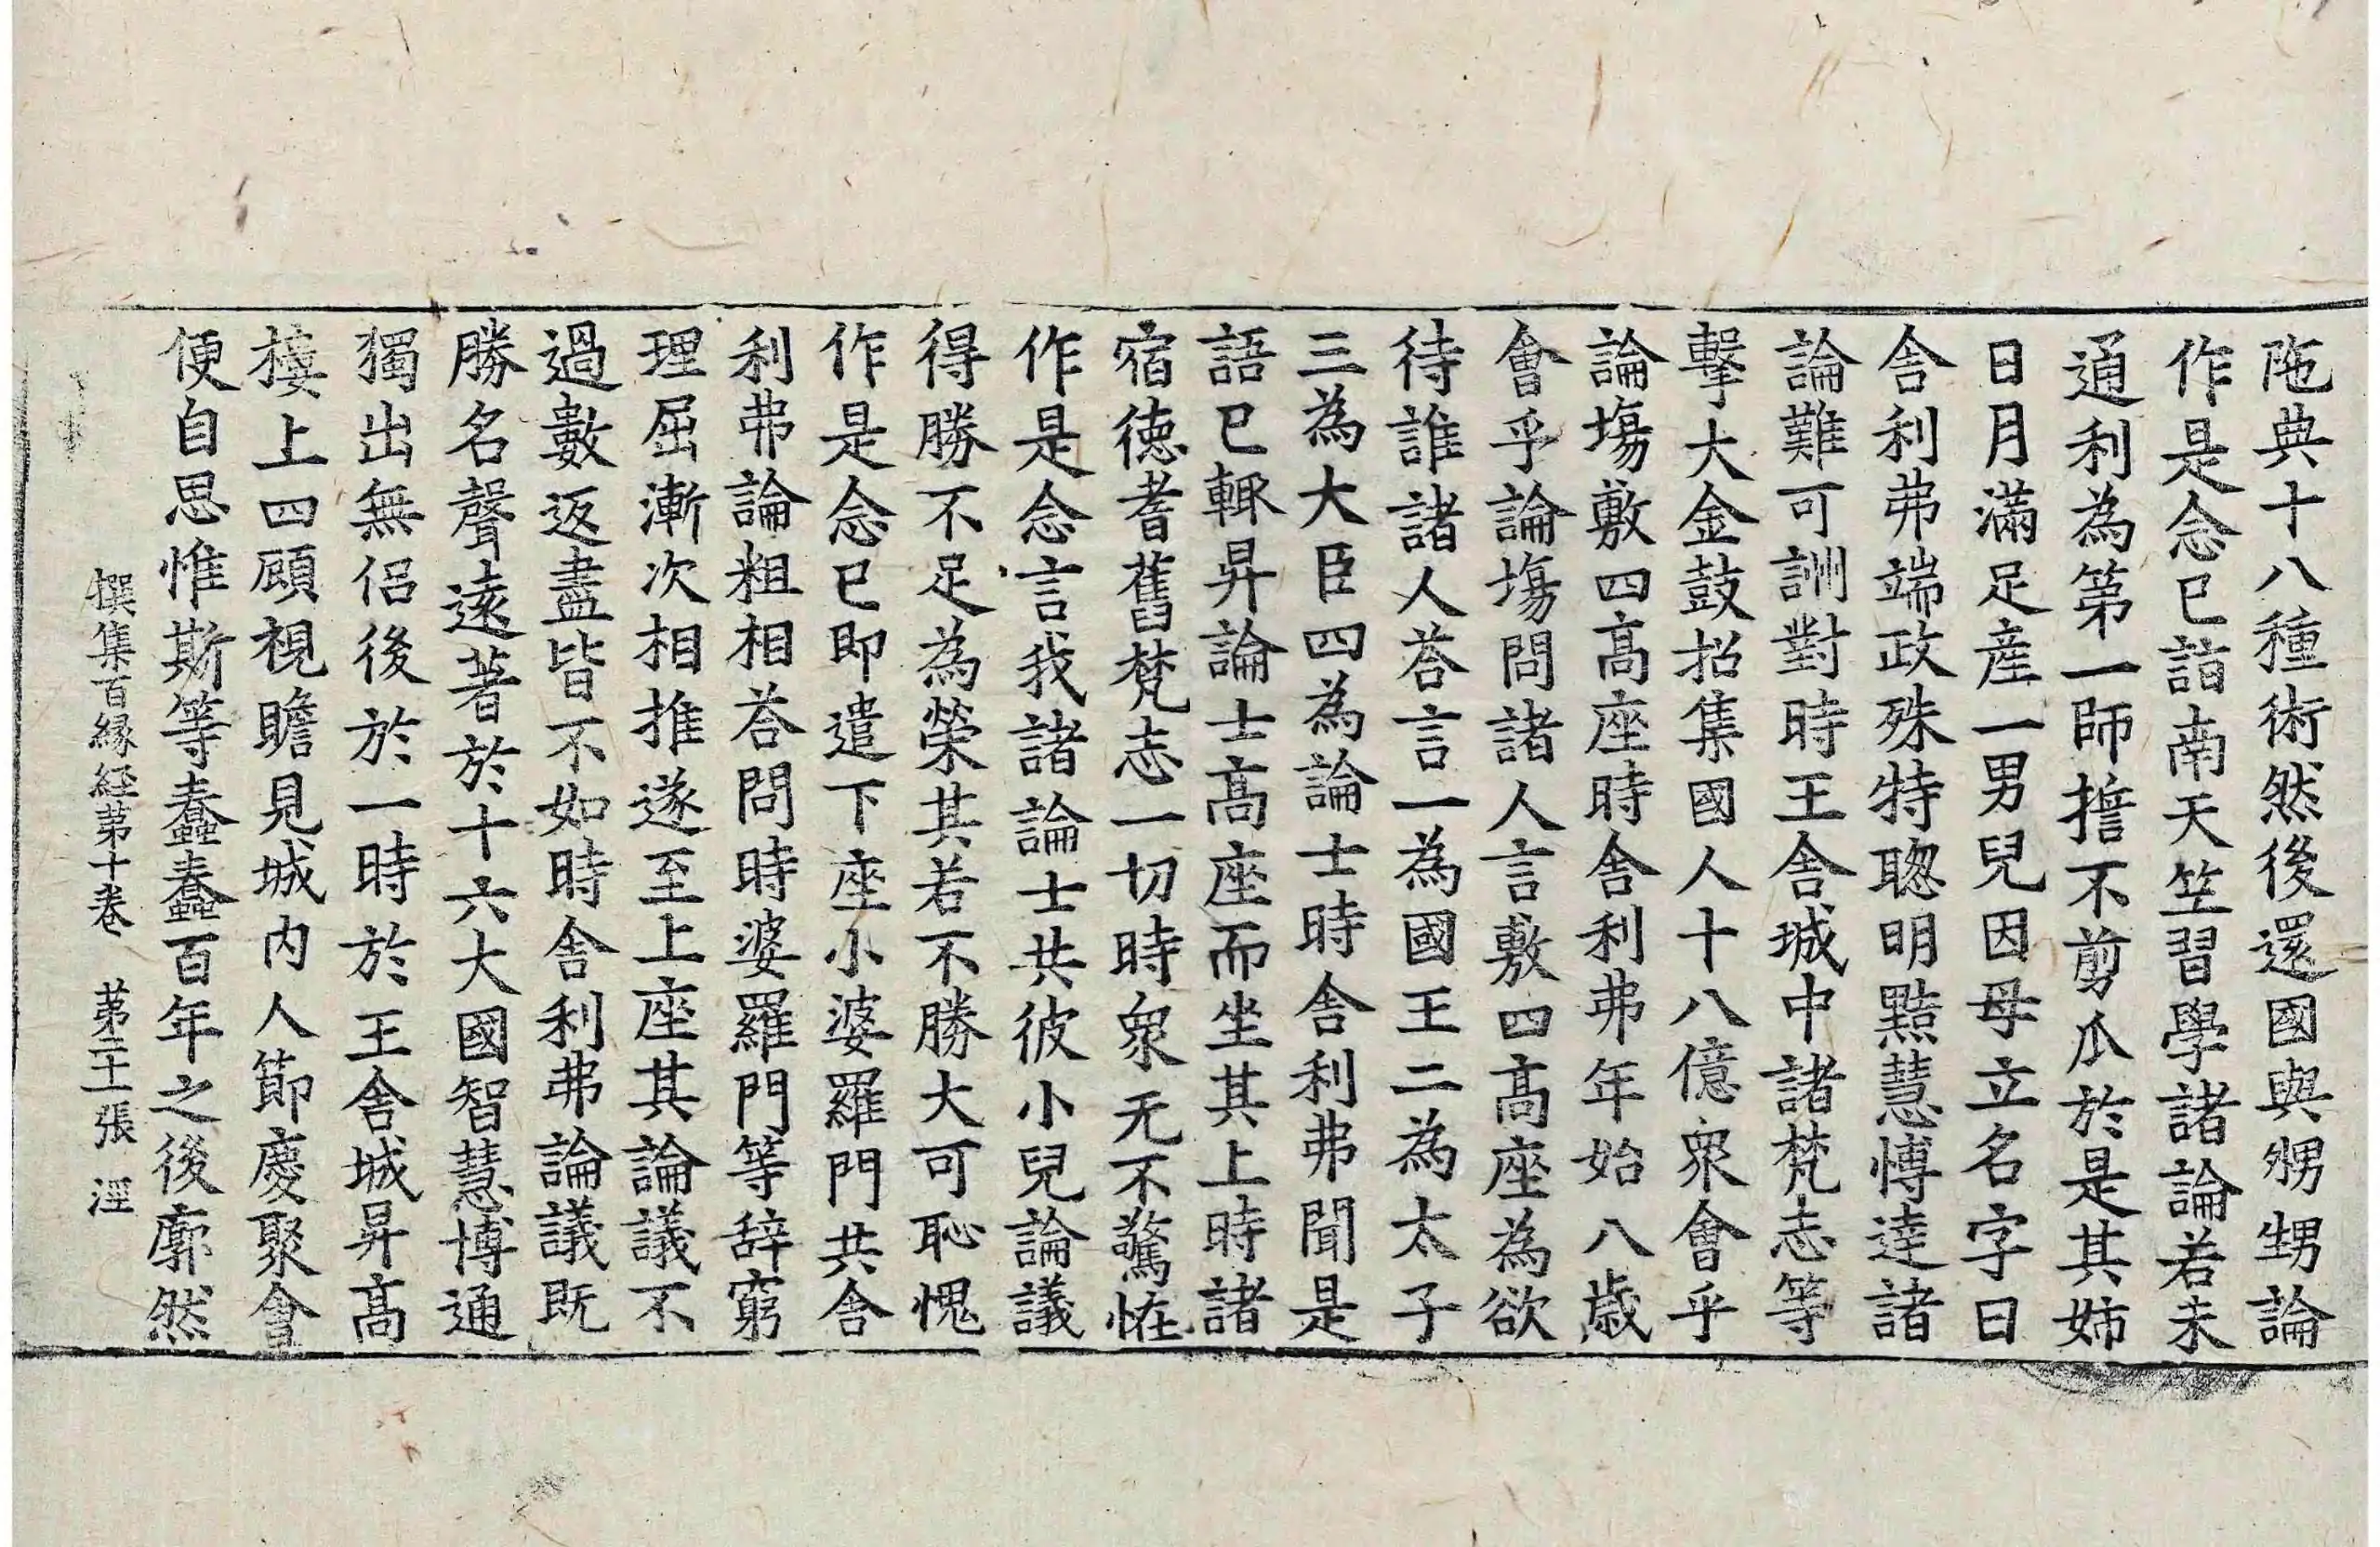 陁典十八種術然後還國與甥甥論
作是念已詣南天竺習學諸論若未
通利為第一師擔不剪爪於是其姉
日月滿足産一男兒因母立名字曰
舍利弗端政殊特聦明黠慧博達諸
論難可詶對時王舍城中諸梵志等
擊大金鼓招集國人十八億衆會乎
論場敷四髙座時舍利弗年始八歳
會乎論場問諸人言敷四髙座為欲
待誰諸人荅言一為國王二為太子
三為大臣四為論士時舍利弗聞是
語已輙昇論士髙座而坐其上時諸
宿徳耆舊梵志一切時衆无不驚恠
作是念言我諸論士共彼小兒論議
得勝不足為榮其若不勝大可恥愧
作是念已即遣下座小婆羅門共舍
利弗論粗相荅問時婆羅門等辞窮
理屈漸次相推遂至上座其論議不
過數返盡皆不如時舍利弗論議既
勝名聲遠著於十六大國智慧博通
獨出無侶後於一時於王舍城昇髙
樓上四顧視瞻見城内人節慶聚會
便自思惟斯等蠢蠢百年之後廓然
撰集百縁経苐十卷　苐二十張　涇